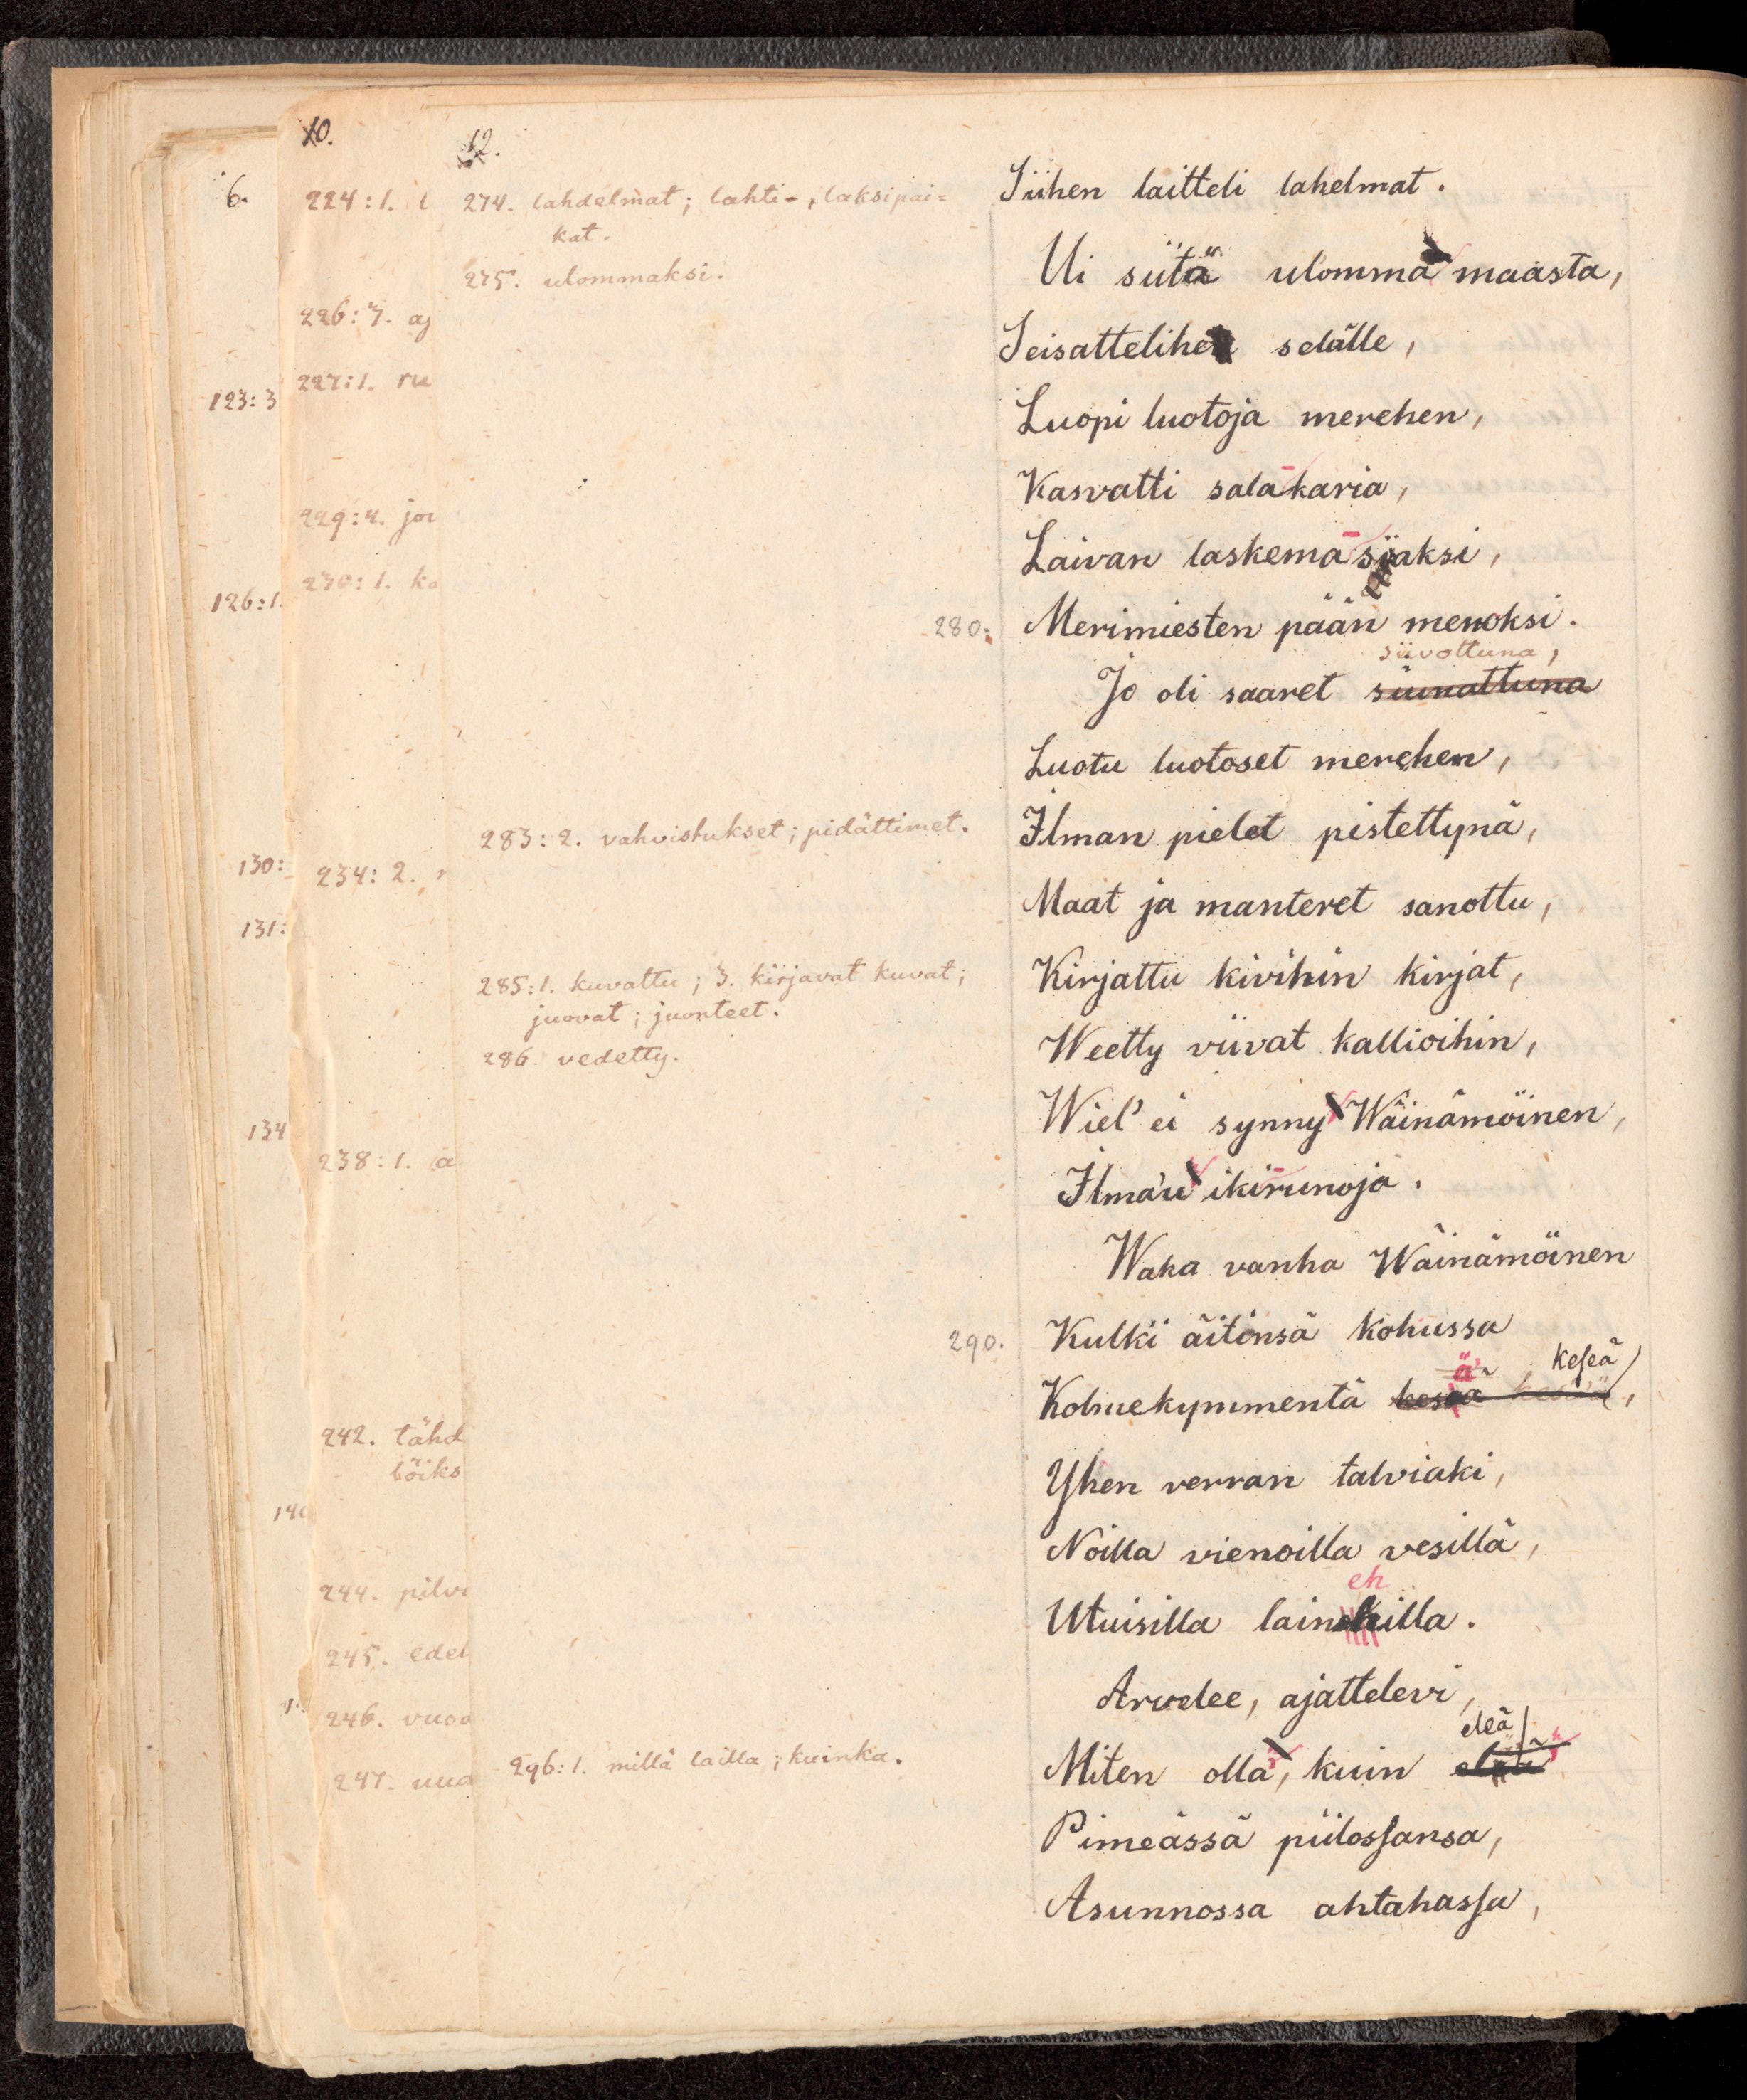 10.
12.
6.
224:1. l
226:7. aj
227:1. ru
123:3
229:4. jou
230:1. ka
126:1.
130:
234:2.
131:
134
238:1. a
242. tähd
löiks
140
244. pilvi
245. edel
246. vuoo
247. uud
274. lahdelmat; lahti-, laksipai=
kat.
275. ulommaksi.
283:2. vahvistukset; pidättimet.
285:1. kuvattu; 3. kirjavat kuvat;
juovat; juonteet.
286. vedetty.
296:1. millä lailla; kuinka.
Siihen laitteli lahelmat.
Ui siitä ulomma maasta,
Seisattelihe selälle,
Luopi luotoja merehen,
Kasvatti salakaria,
Laivan laskemasijaksi,
280. Merimiesten pään menoksi.
siivottuna,
Jo oli saaret siunattuna
Luotu luotoset merehen,
Ilman pielet pistettynä,
Maat ja manteret sanottu,
Kirjattu kivihin kirjat,
Weetty viivat kallioihin,
Wiel' ei synny Wäinämöinen,
Ilmau ikirunoja.
Waka vanha Wäinämöinen
290. Kulki äitinsä kohussa
keseä
Kolmekymmentä keseä kesiä,
Yhen verran talviaki,
Noilla vienoilla vesillä,
eh
Utuisilla lainehilla.
Arvelee, ajattelevi,
eleä
Miten olla, kuin eleä
Pimeässä piilossansa,
Asunnossa ahtahassa,